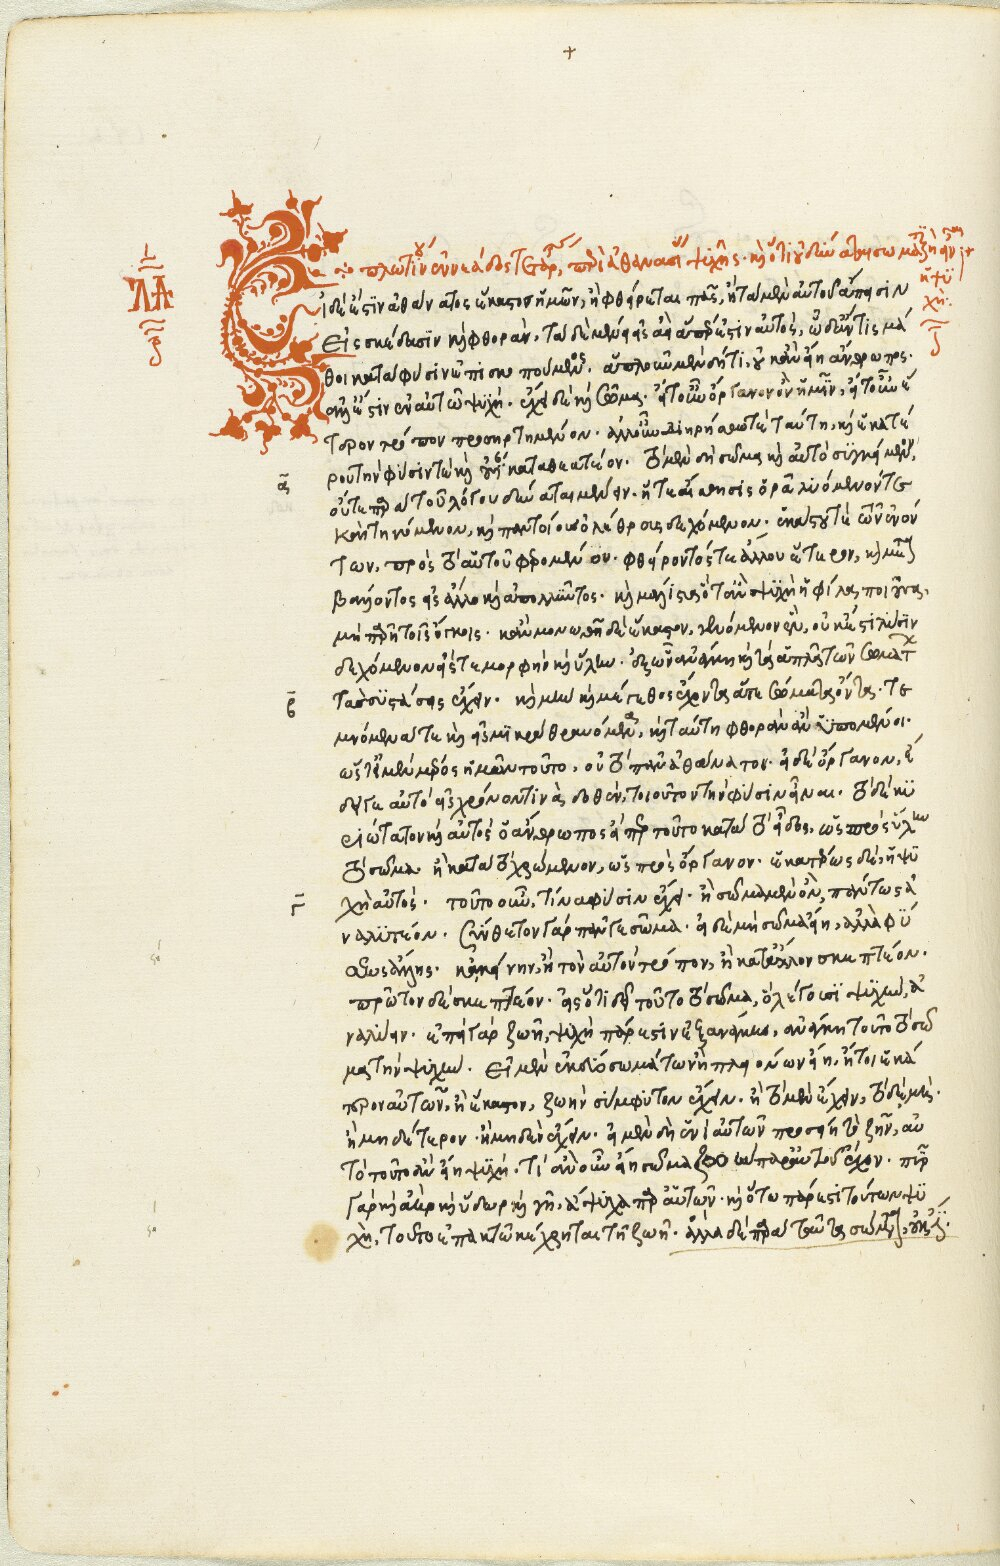 +
πλωτίνου ἐννεάδος τετάρτης, περὶ ἀθανασίας ψυχῆς· καὶ ὅτι οὐ δύναται
ἡ ψυ
χή:
ΛΑ
Εἰ δέ ἐστιν ἀθάνατος ἕκαστος ἡμῶν, ἢ φθείρεται πᾶς, ἢ τὰ μὲν αὐτοῦ ἄπεισιν
εἰς σκέδασιν καὶ φθοράν, τὰ δὲ μένει εἰς ἀεὶ ἅπερ ἐστὶν αὐτός, ὧδ' ἄν τις μά
θοι κατὰ φύσιν ἐπισκοπούμενος. ἁπλοῦν μὲν δή τι, οὐκ ἂν εἴη ἄνθρωπος·
ἀλλ' ἔστιν ἐν αὐτῷ ψυχή. ἔχει δὲ καὶ σῶμα· εἴτ' οὖν ὄργανον ὂν ἡμῖν, εἴτ' οὖν ἕ
τερον τρόπον προσηρτημένον. ἀλλ' οὖν διῃρήσθω τὲ ταύτη, καὶ ἑκατέ
ρου τὴν φύσιν τὲ καὶ οὐσίαν καταθεατέον. τὸ μὲν δὴ σῶμα καὶ αὐτὸ συγκείμενον,
α
οὔτε παρὰ τοῦ λόγου δύναται μένειν. ἥ τε αἴσθησις ὁρᾷ λυόμενόν τε
καὶ τηκόμενον, καὶ παντοίους ὀλέθρους δεχόμενον. ἑκάστου τὲ τῶν ἐνόν
των, πρὸς τὸ αὑτοῦ φερομένου. φθείροντός τε ἄλλου ἕτερον, καὶ μετα
βάλλοντος εἰς ἄλλο καὶ ἀπολλύντος. καὶ μάλιστα ὅταν ψυχὴ ἡ φίλα ποιοῦσα,
μὴ παρῇ τοῖς ὄγκοις. κἂν μονωθῇ δὲ ἕκαστον, γενόμενον ἕν, οὐκ ἔστι λύσιν
δεχόμενον εἴς τε μορφὴν καὶ ὕλην. ἐξ ὧν ἀνάγκη καὶ τὰ ἁπλᾶ τῶν σωμάτων
β
τὰς συστάσεις ἔχειν. καὶ μὴν καὶ μέγεθος ἔχοντα ἅτε σώματα ὄντα. τε
μνόμενά τε καὶ εἰς μικρὰ θραυόμενα, καὶ ταύτη φθορὰν ἂν ὑπομένοι.
ὥστ' εἰ μὲν μέρος ἡμῶν τοῦτο, οὐ τὸ πᾶν ἀθάνατοι. εἰ δὲ ὄργανον, ἔ
δει γε αὐτὸ εἰς χρόνον τινὰ δοθέν, τοιοῦτον τὴν φύσιν εἶναι. τὸ δὲ κυ
ριώτατον καὶ αὐτὸς ὁ ἄνθρωπος εἴπερ τοῦτο κατὰ τὸ εἶδος, ὡς πρὸς ὕλην
τὸ σῶμα. ἢ κατὰ τὸ χρώμενον, ὡς πρὸς ὄργανον. ἑκατέρως δὲ, ἡ ψυ
γ
χὴ αὐτός. τοῦτο οὖν, τίνα φύσιν ἔχει. ἢ σῶμα μὲν ὂν, πάντως ἀ
ναλυτέον. σύνθετον γὰρ πᾶν γε σῶμα. εἰ δὲ μὴ σῶμα εἴη, ἀλλὰ φύ
σεως ἄλλης. κἀκείνην, ἢ τὸν αὐτὸν τρόπον, ἢ κατ' ἄλλον σκεπτέον.
πρῶτον δὲ σκεπτέον. εἰς ὅ τι δεῖ τοῦτο τὸ σῶμα, ὃ λέγουσι ψυχήν, ἀ
ναλύειν. ἐπεὶ γὰρ ζωὴ, ψυχῇ πάρεστιν ἐξ ἀνάγκης, ἀνάγκη τοῦτο τὸ σῶ
μα τὴν ψυχήν. εἰ μὲν ἐκ δύο σωμάτων ἢ πλειόνων εἴη, ἤτοι ἑκά
τερον αὐτῶν, ἢ ἕκαστον, ζωὴν σύμφυτον ἔχειν. ἢ τὸ μὲν ἔχειν, τὸ δὲ μή.
ἢ μηδέτερον· ἢ μηδὲν ἔχειν. εἰ μὲν δὴ ἑνὶ αὐτῶν προσείη τὸ ζῆν, αὐ
τὸ τοῦτο ἂν εἴη ψυχή. τί ἂν οὖν εἴη σῶμα ζωὴν παρ' αὐτοῦ ἔχον. πῦρ
γὰρ καὶ ἀὴρ καὶ ὕδωρ καὶ γῆ, ἄψυχα παρ' αὑτῶν. καὶ ὅτῳ πάρεστι τούτων ψυ
χὴ, τοῦτο ἐπακτῷ κέχρηται τῇ ζωῇ. ἄλλα δὲ παρὰ ταῦτα σώματα, οὐκ ἔστι.